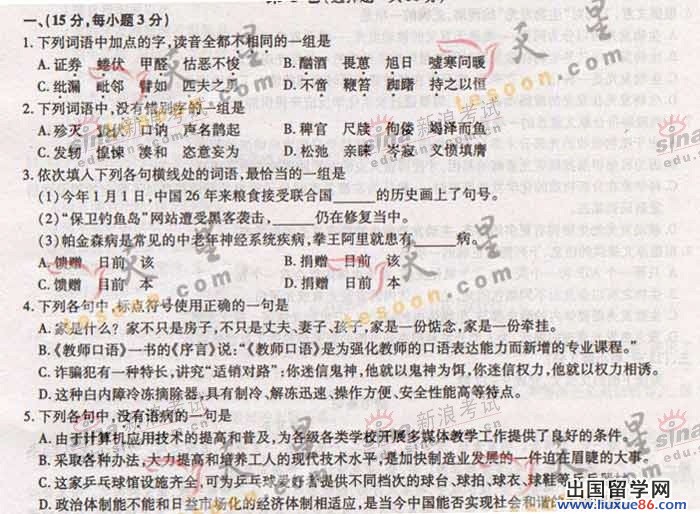 一、(15分,每小题3分)
1.下列词语中加点的字,读音全都不相同的一组是
A.证券 蜷伏 甲醛 怙恶不悛 B.酣酒 畏葸 旭日 嘘寒问暖
C.纰漏 毗邻 譬如 匹夫之勇 D.不啻 鞭笞 踟蹰 持之以恒
2.下列词语中,没有错别字的一组是
A.殄灭 口讷 声名鹊起 B.稗官 尺牍 佝偻 竭泽而鱼
C.发轫 惶悚 凑和 恣意妄为 D.松弛 亲睐 岑寂 文恬武嬉
3.依次填入下列各句横线处的词语,最恰当的一组是
(1)今年1月1日,中国26年来粮食接受联合国______的历史画上了句号。
(2)“保卫钓鱼岛”网站遭受黑客袭击,______仍在修复当中。
(3)帕金森病是常见的中老年神经系统疾病,拳王阿里就患有______病。
A.馈赠 日前 该 B.捐赠 目前 该
C.馈赠 目前 本 D.捐赠 日前 本
4.下列各句中,标点符号使用正确的一句是
A.家是什么?家不只是房子,不只是丈夫、妻子、孩子,家是一份惦念,家是一份牵挂。
B.《教师口语》一书的《序言》说:“《教师口语》是为强化教师的口语表达能力而新增的专业课程。”
C.诈骗犯有一种特长,讲究“适销对路”:你迷信鬼神,他就以鬼神为饵,你迷信权力,他就以权力相诱。
D.这种白内障冷冻摘除器,具有制冷、解冻迅速、操作方便、安全性能高等特点。
5.下列各句中,没有语病的一句是
A.由于计算机应用技术的提高和普及,为各级各类学校开展多媒体教学工作提供了良好的条件。
B.采取各种办法,大力提高和培养工人的现代技术水平,是加快制造业发展的一件迫在眉睫的大事。
C.这家乒乓球馆设施齐全,可为乒乓球爱好者提供不同档次的球台、球拍、球衣、球鞋
D.政治体制能不能和日益市场化的经济体制相适应,是当今中国能否实现社会和谐的
天星
Tesoon.com
新浪考试
sina
出国留学网
www.liuxue86.com